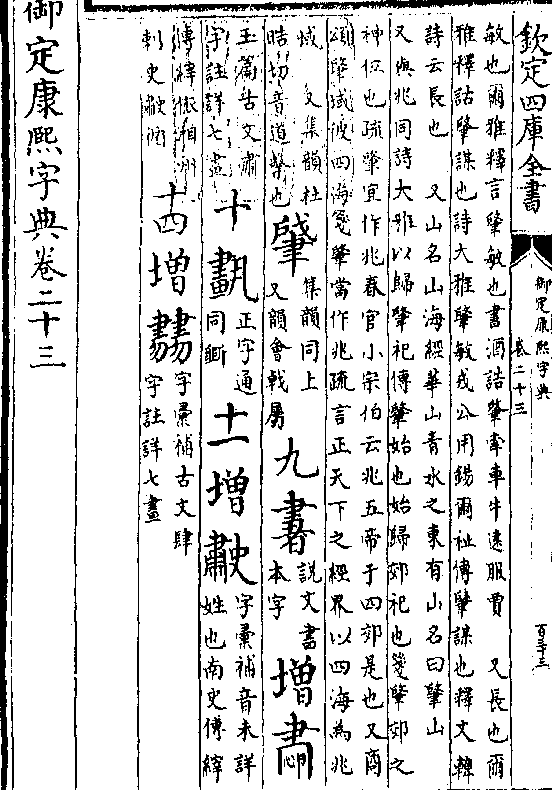 欽定四庫全書
御定康熙字典
卷二十三
百三十三
敏也爾雅釋言肇敏也書酒誥肇牽車牛遠服賈　又長也爾
雅釋詁肇謀也詩大雅肇敏戎公用錫爾祉傳肇謀也釋文韓
詩云長也　又山名山海經華山青水之東有山名曰肇山
又與兆同詩大雅以歸肇祀傳肇始也始歸郊祀也箋肇郊之
神位也疏肇宜作兆春官小宗伯云兆五帝于四郊是也又商
頌肇域彼四海箋肇當作兆疏言正天下之經界以四海為兆
域　又集韻杜
皓切音道擊也
肈
集韻同上
又韻會戟屬
九
書
說文書
本字
增
玉篇古文肅
字註詳七畫
十
正字通
同
十一
增
字彙補音未詳
姓也南史傳縡
傳縡依湘州
刺史
十四
增
字彙補古文肆
字註詳七畫
御定康熙字典卷二十三